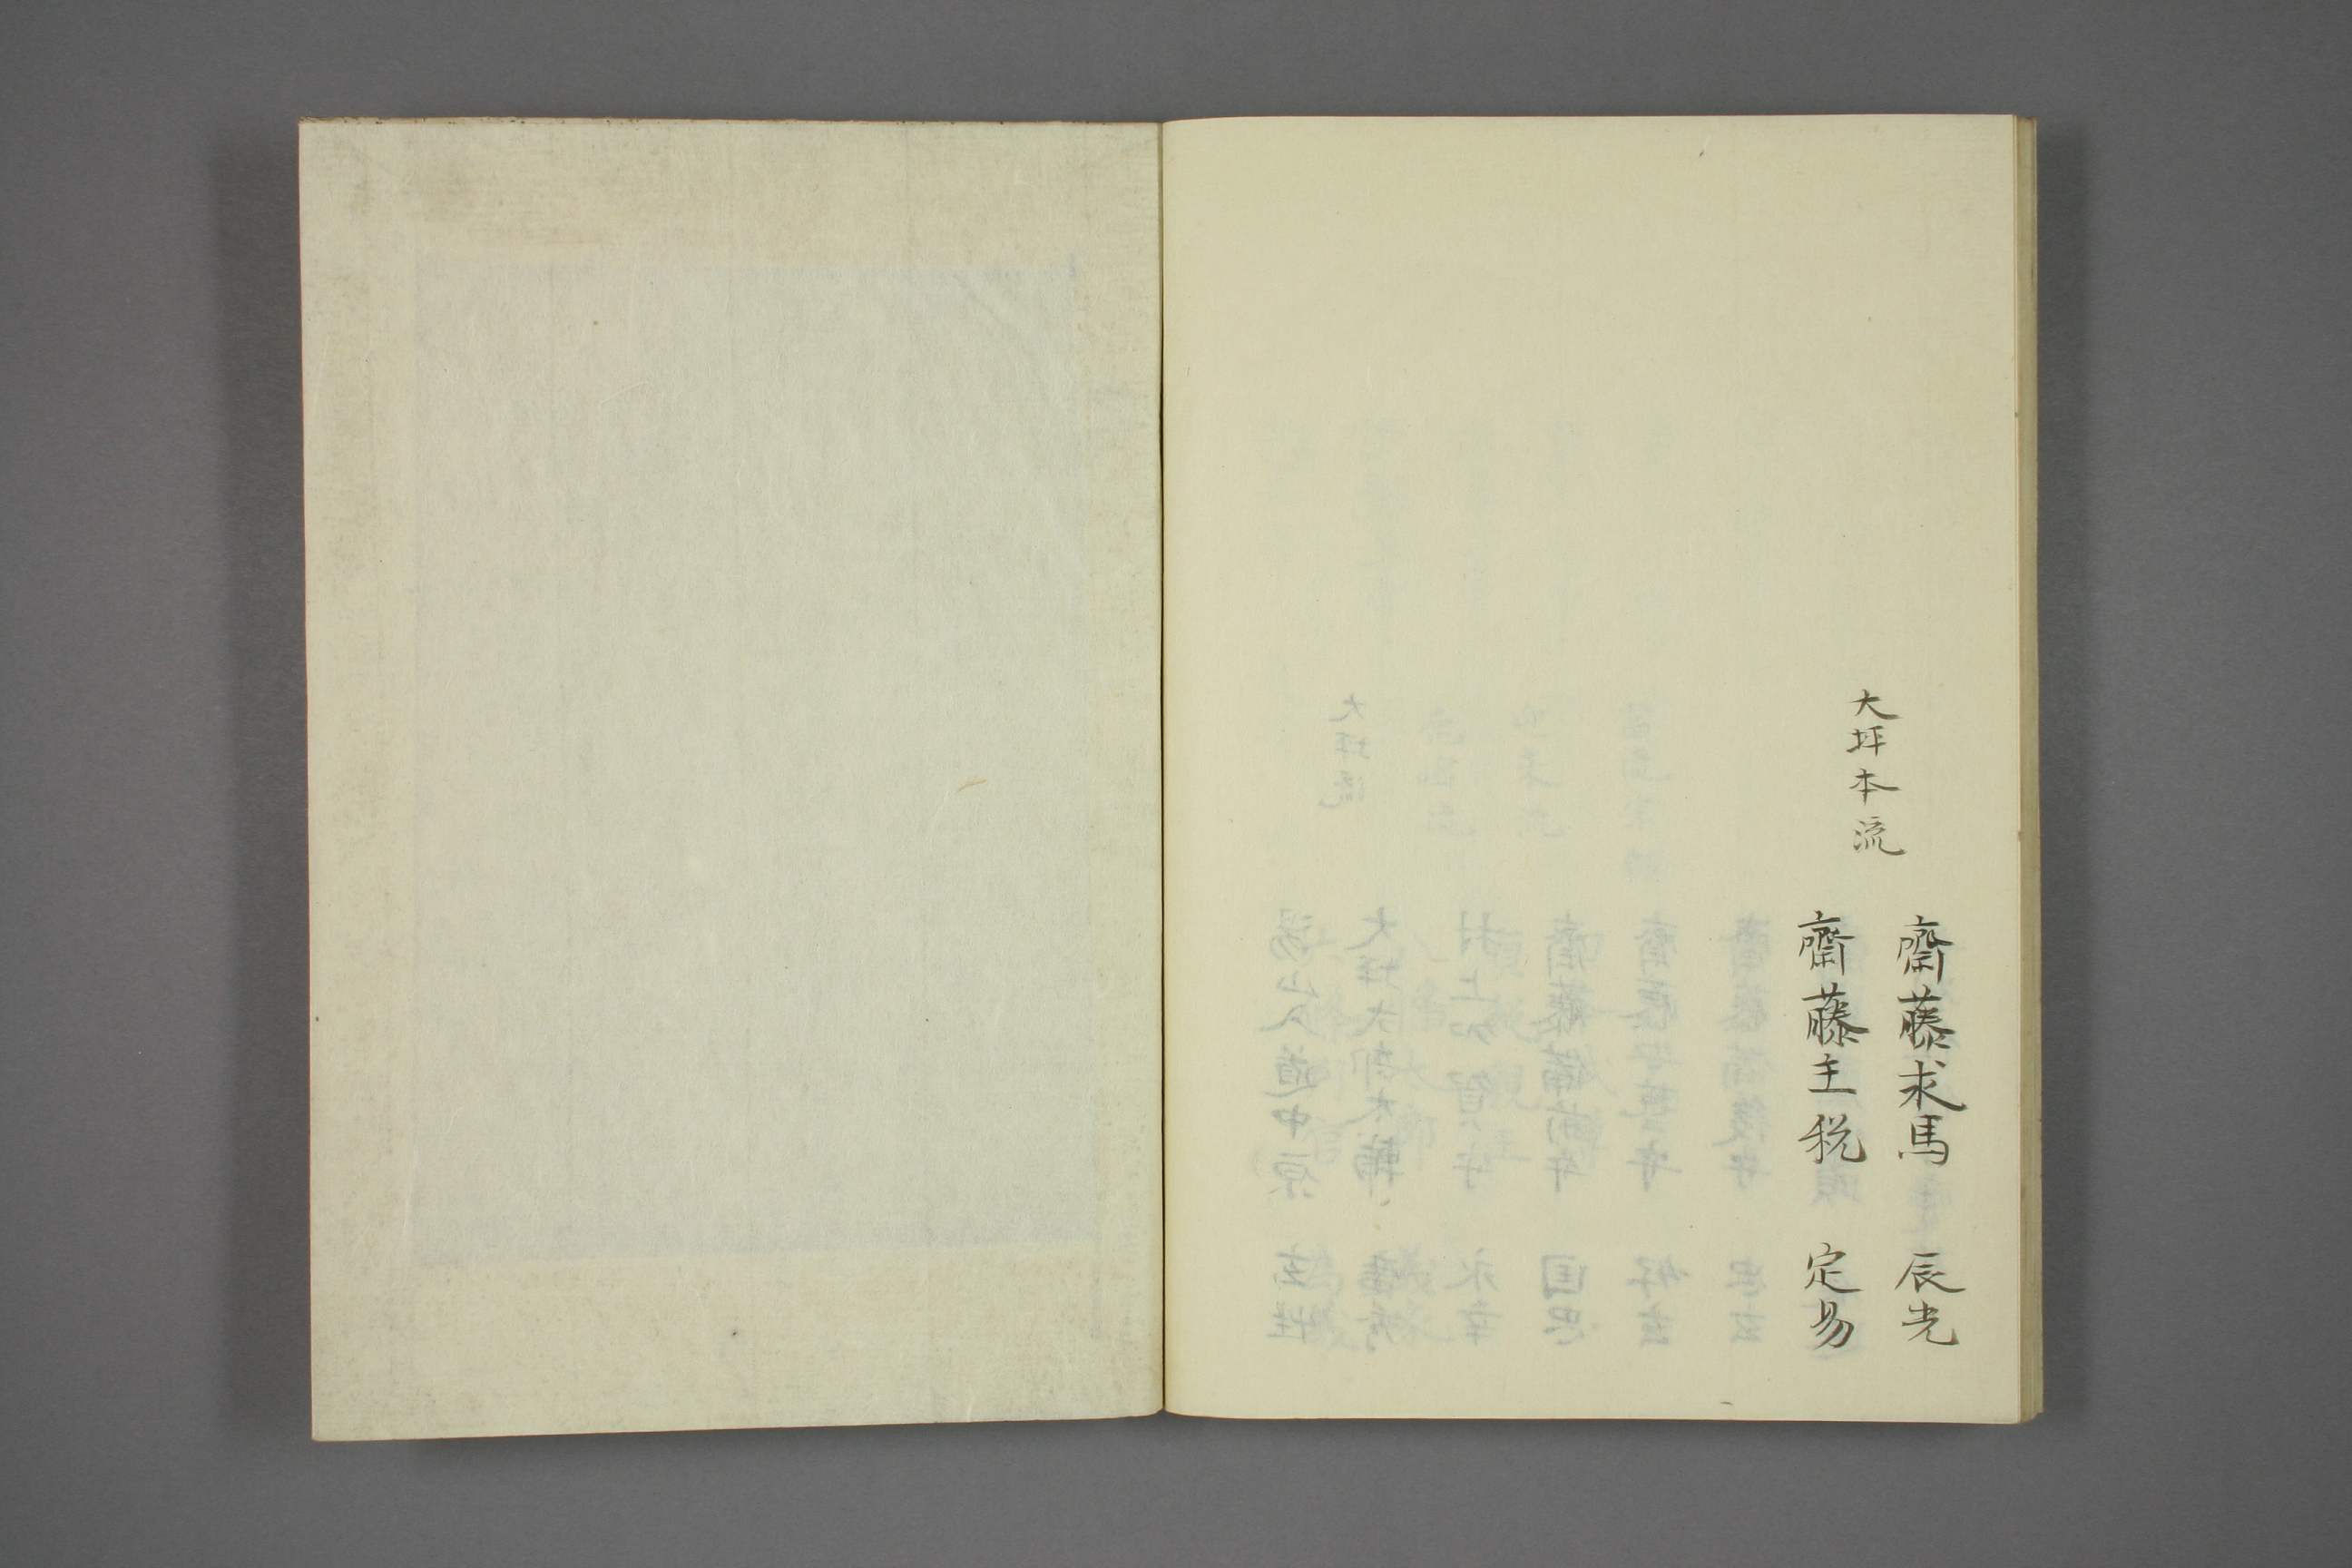 齋藤求馬　辰光
大坪本流
齋藤主税　定易